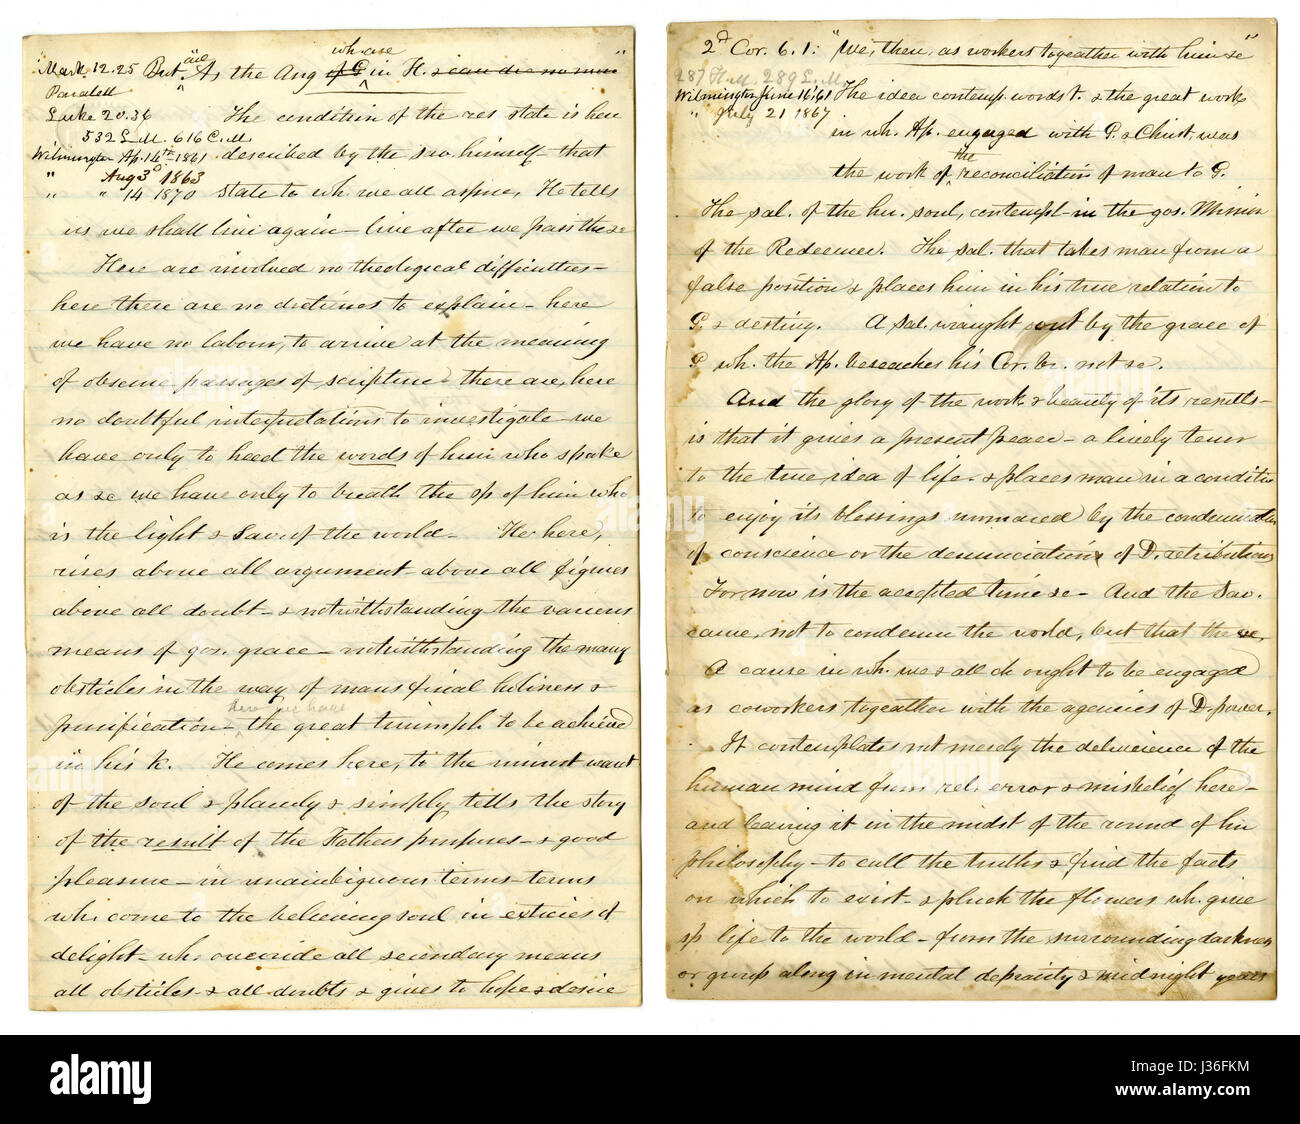 wh. are
"Mark. 12.25 But are As the Ang of G in H. & can die no more"
Paralell
Luke 20.36 The condition of the res. state is here
532 L.M. 616 C.M.
Wilmington Ap. 14th 1861 described by the sav. himself - that
" Aug 3d 1863
" " 14 1870 state to wh. we all aspire, He tells
us we shall live again - live after we pass the &c
Here are involved no theological difficulties -
here there are no doctrines to explain - here
we have no labour, to arrive at the meaning
of obscure passages of scripture - there are, here
no doubtful interpretations to investigate - we
have only to heed the words of him who spoke
as &c we have only to breath the sp of him who
is the light & Sav. of the world - He, here,
rises above all argument - above all figures
above all doubt - & notwithstanding the various
means of gos. grace - notwithstanding the many
obsticles in the way of mans final holiness &
here we have
purification - the great triumph to be achieved
in his k. He comes here, to the inmost want
of the soul & plainly & simply tells the story
of the result of the Fathers purposes - & good
pleasure - in unambiguous terms - terms
wh. come to the believing soul in exticies of
delight - wh. override all secondary means
all obsticles - & all doubts & gives to hope & desire
2d Cor. 6. 1: "We, then, as workers togeather with him &c"
287 H.M. 289 L.M.
Wilmington June 16 '61 The idea contemp. words t. & the great work
" July 21 1867
in wh. Ap. engaged with G. & Christ, was
the work of the reconciliation of man to G.
The sal. of the hu. soul, contempt in the gos. Minin
of the Redeemer. The sal. that takes man from a
false position & places him in his true relation to
G. & destiny. A sal. wraught out by the grace of
G wh. the Ap. beseaches his Cor. br. not &c.
And the glory of the work & beauty of its results -
is that it gives a present peace - a lively tenor
to the true idea of life. & places man in a conditio
to enjoy its blessings unmared by the condemnation
of conscience or the denunciations of D. retributions
For now is the accepted time &c - And the Sav.
came, not to condemn the world, but that the &c.
A cause in wh. we & all ch ought to be engaged
as coworkers togeather with the agencies of D. power.
It contemplates not merely the deliverence of the
human mind from rel. error & misbelief here -
and leaving it in the midst of the round of hu
philosophy - to cull the truths & find the facts
on which to exist - & pluck the flowers wh. give
sp life to the world - from the surrounding darkness
or grasp along in mental depravity & midnight years
alamy
alamy
alamy
alamy
Image ID: J36FKM
www.alamy.com